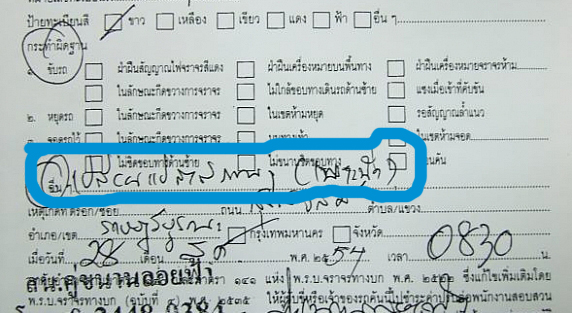 ป้ายทะเบียนสี ขาว เหลือง เขียว แดง ฟ้า อื่น ๆ
กระทำผิดฐาน
๑. ขับรถ ฝ่าฝืนสัญญาณไฟจราจรสีแดง ฝ่าฝืนเครื่องหมายบนพื้นทาง ฝ่าฝืนเครื่องหมายจราจรห้าม
ในลักษณะกีดขวางการจราจร ไม่ใกล้ขอบทางเดินรถด้านซ้าย แซงเมื่อเข้าที่คับขัน
๒. หยุดรถ ในลักษณะกีดขวางการจราจร ในเขตห้ามหยุด รอสัญญาณล้ำแนว
๓. จอดรถไว้ ในลักษณะกีดขวางการจราจร บนทางเท้า ในเขตห้ามจอด
ไม่ชิดขอบทางด้านซ้าย ไม่ขนานชิดขอบทาง
อื่น ๆ
เหตุเกิดที่ ตรอก/ซอย ถนน ตำบล/แขวง
อำเภอ/เขต ราษฎร์บูรณะ กรุงเทพมหานคร จังหวัด
เมื่อวันที่ 28 เดือน พ.ศ. ๒๕ 54 เวลา 0830 น.
สน.คู่ขนานลอยฟ้า ๑๔๑ แห่ง พ.ร.บ.จราจรทางบก พ.ศ. ๒๕๒๒ ซึ่งแก้ไขเพิ่มเติมโดย
พ.ร.บ.จราจรทางบก (ฉบับที่ ๔) พ.ศ. ๒๕๓๕ ให้ผู้ขับขี่หรือเจ้าของรถคันนี้ไปชำระค่าปรับต่อพนักงานสอบสวน